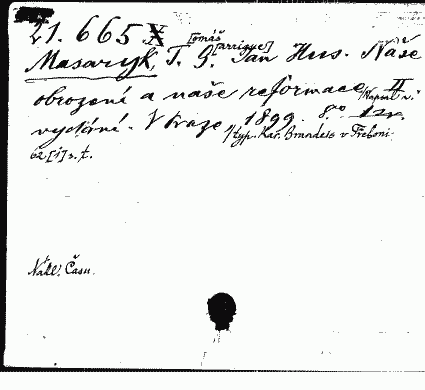 21.665 X
Masaryk, T.[omáš] G.[arrigue] Jan Hus. Naše
obrození a naše reformace. II
vydání. V Praze, 1899. 8.° 1 sv.
typ. Kar. Brandeis v Třeboni.
62 [1] s. t.
Nákl. Času.